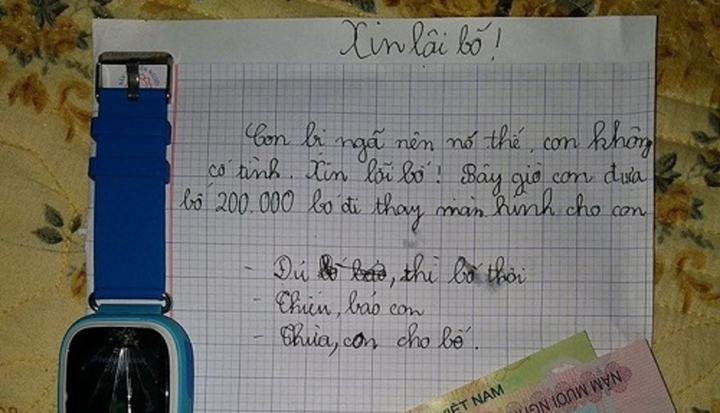 Xin lỗi bố!
Con bị ngã nên nó thế, con không
cố tình. Xin lỗi bố! Bây giờ con đưa
bố 200.000 bố đi thay màn hình cho con
- Dủ, thì bố thôi
- Thiếu, bảo con
- Thừa, con cho bố.
VIỆT NAM
NĂM MƯƠI NGH